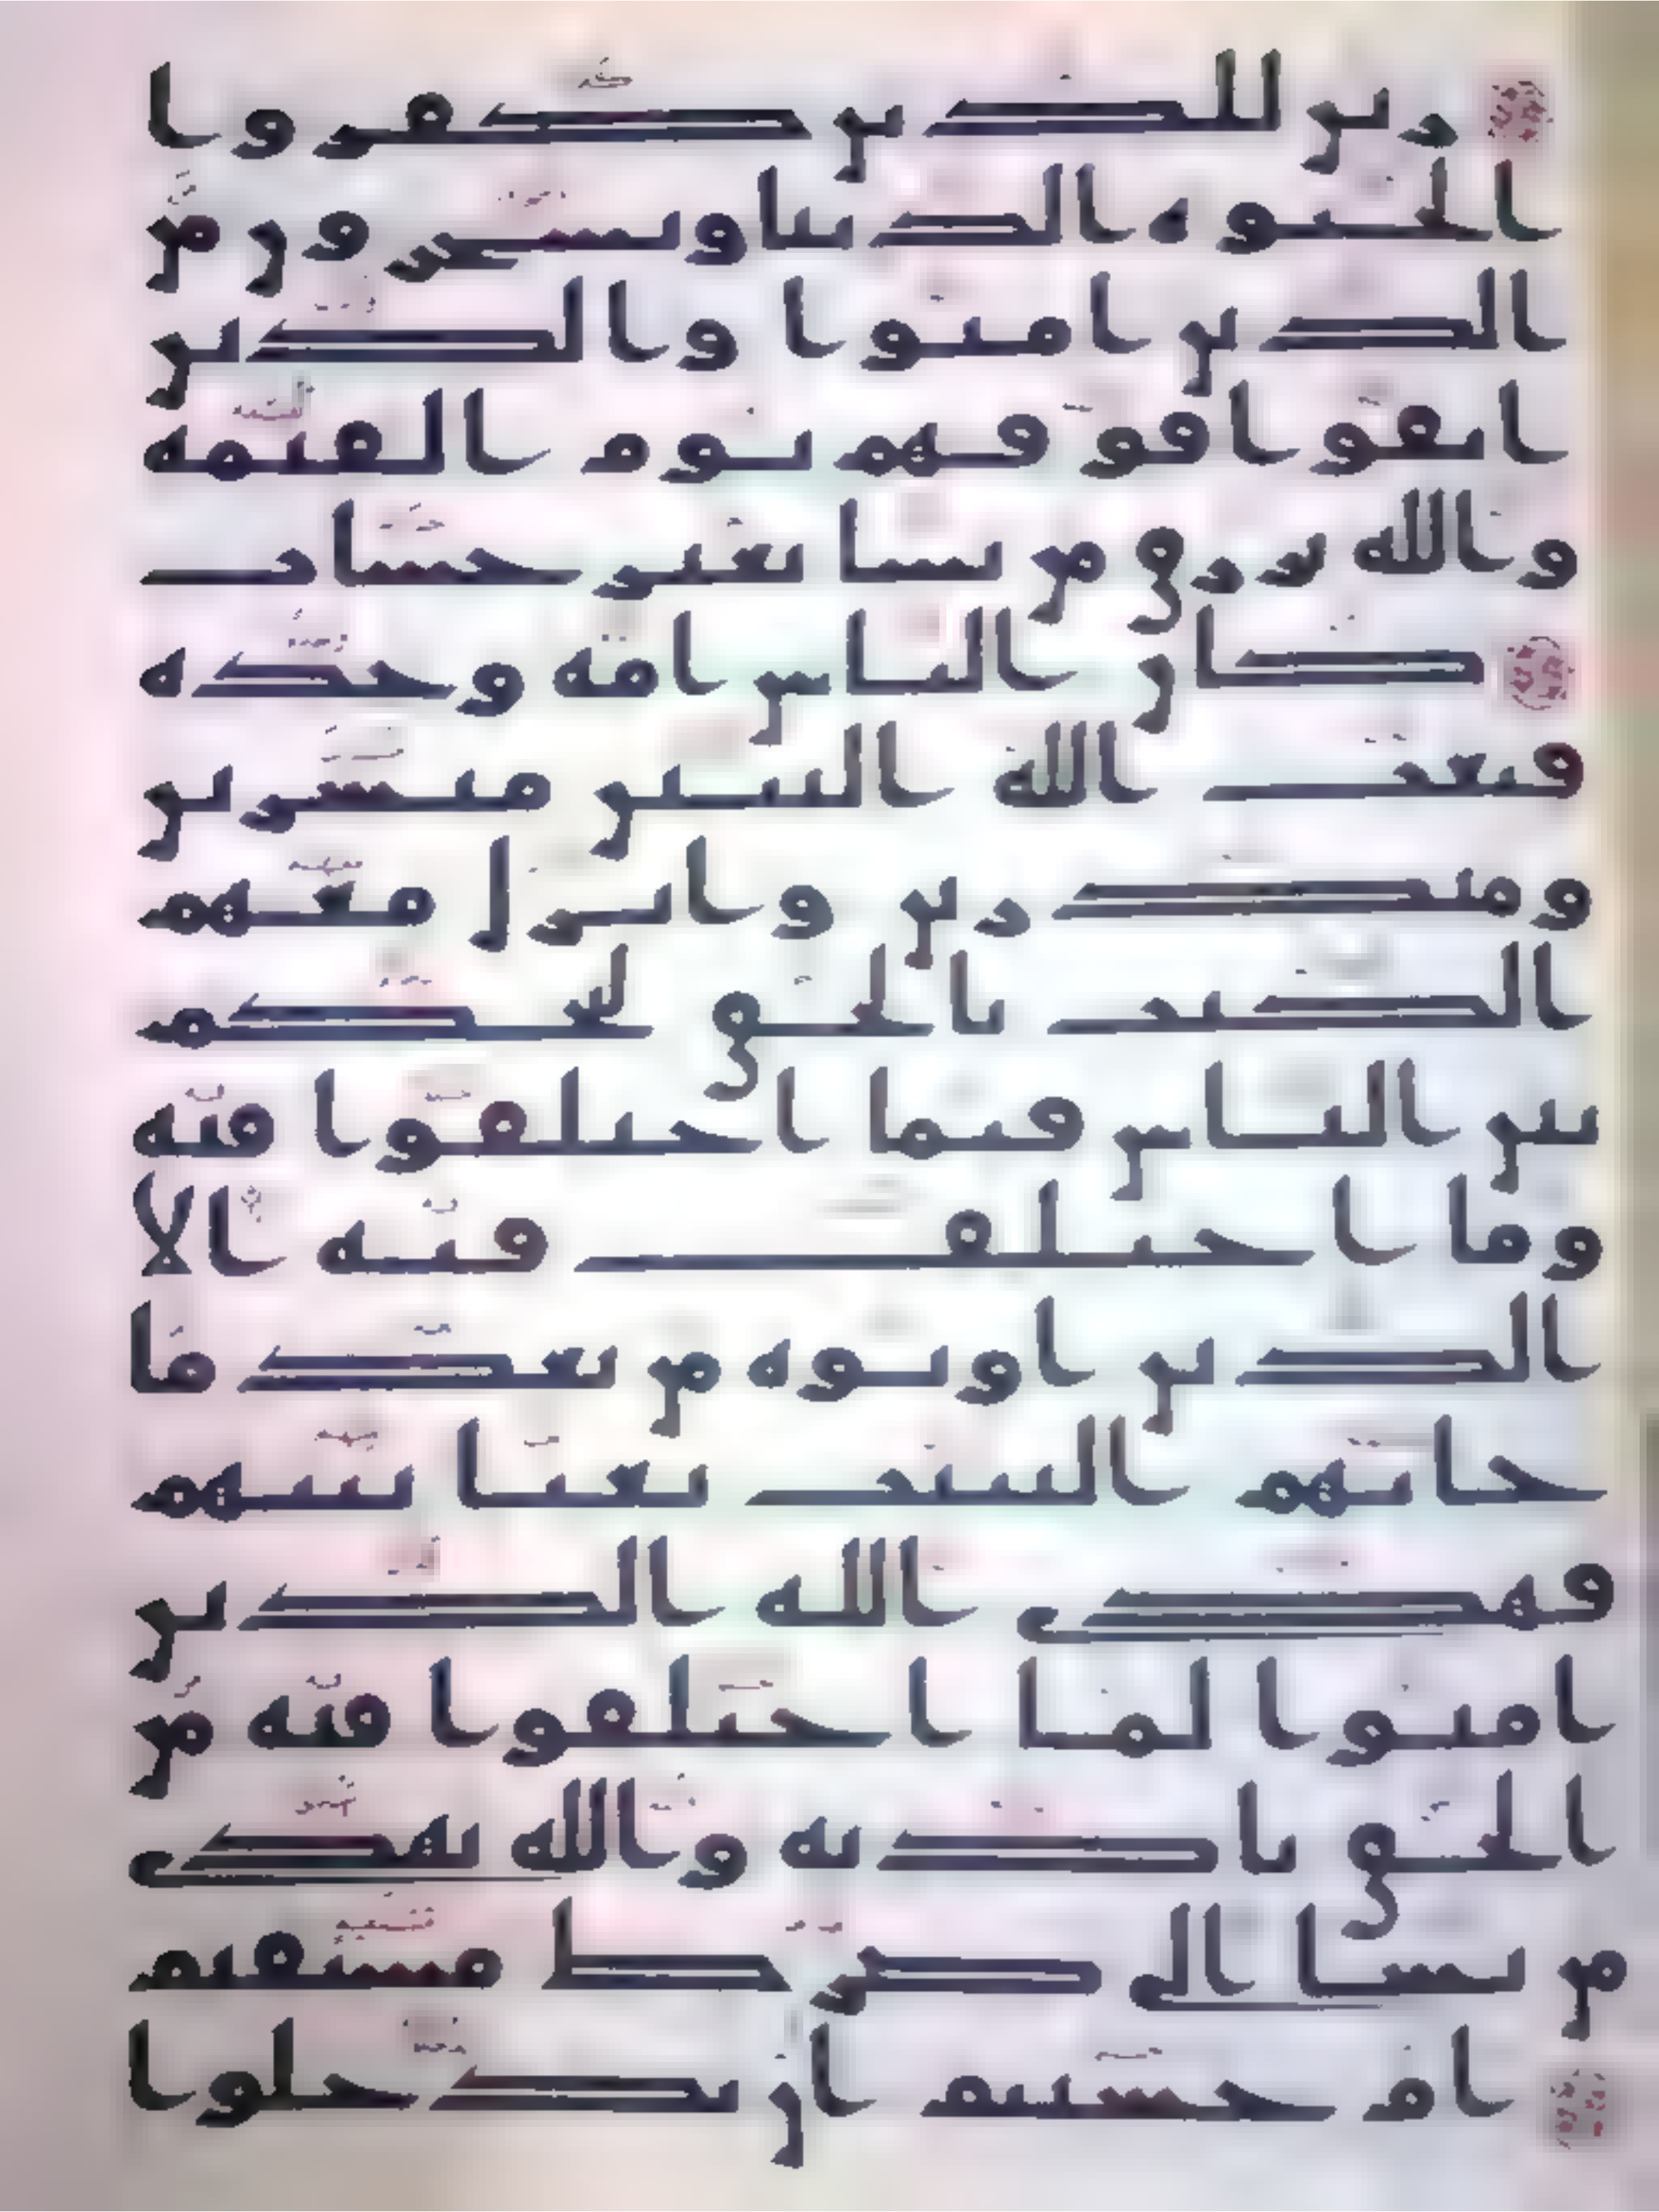 زين للذين كفروا
الحيوه الدنيا ويسخرون من
الذين امنوا والذين
اتقوا فوقهم يوم القيمه
والله يرزق من يشا بغير حساب
كان الناس امه وحده
فبعث الله النبين مبشرين
ومنذرين وانزل معهم
الكتب بالحق ليحكم
بين الناس فيما اختلفوا فيه
وما اختلف فيه الا
الذين اوتوه من بعد ما
جاتهم البينت بغيا بينهم
فهدى الله الذين
امنوا لما اختلفوا فيه من
الحق باذنه والله يهدى
من يشا الى صرط مستقيم
ام حسبتم ان تدخلوا